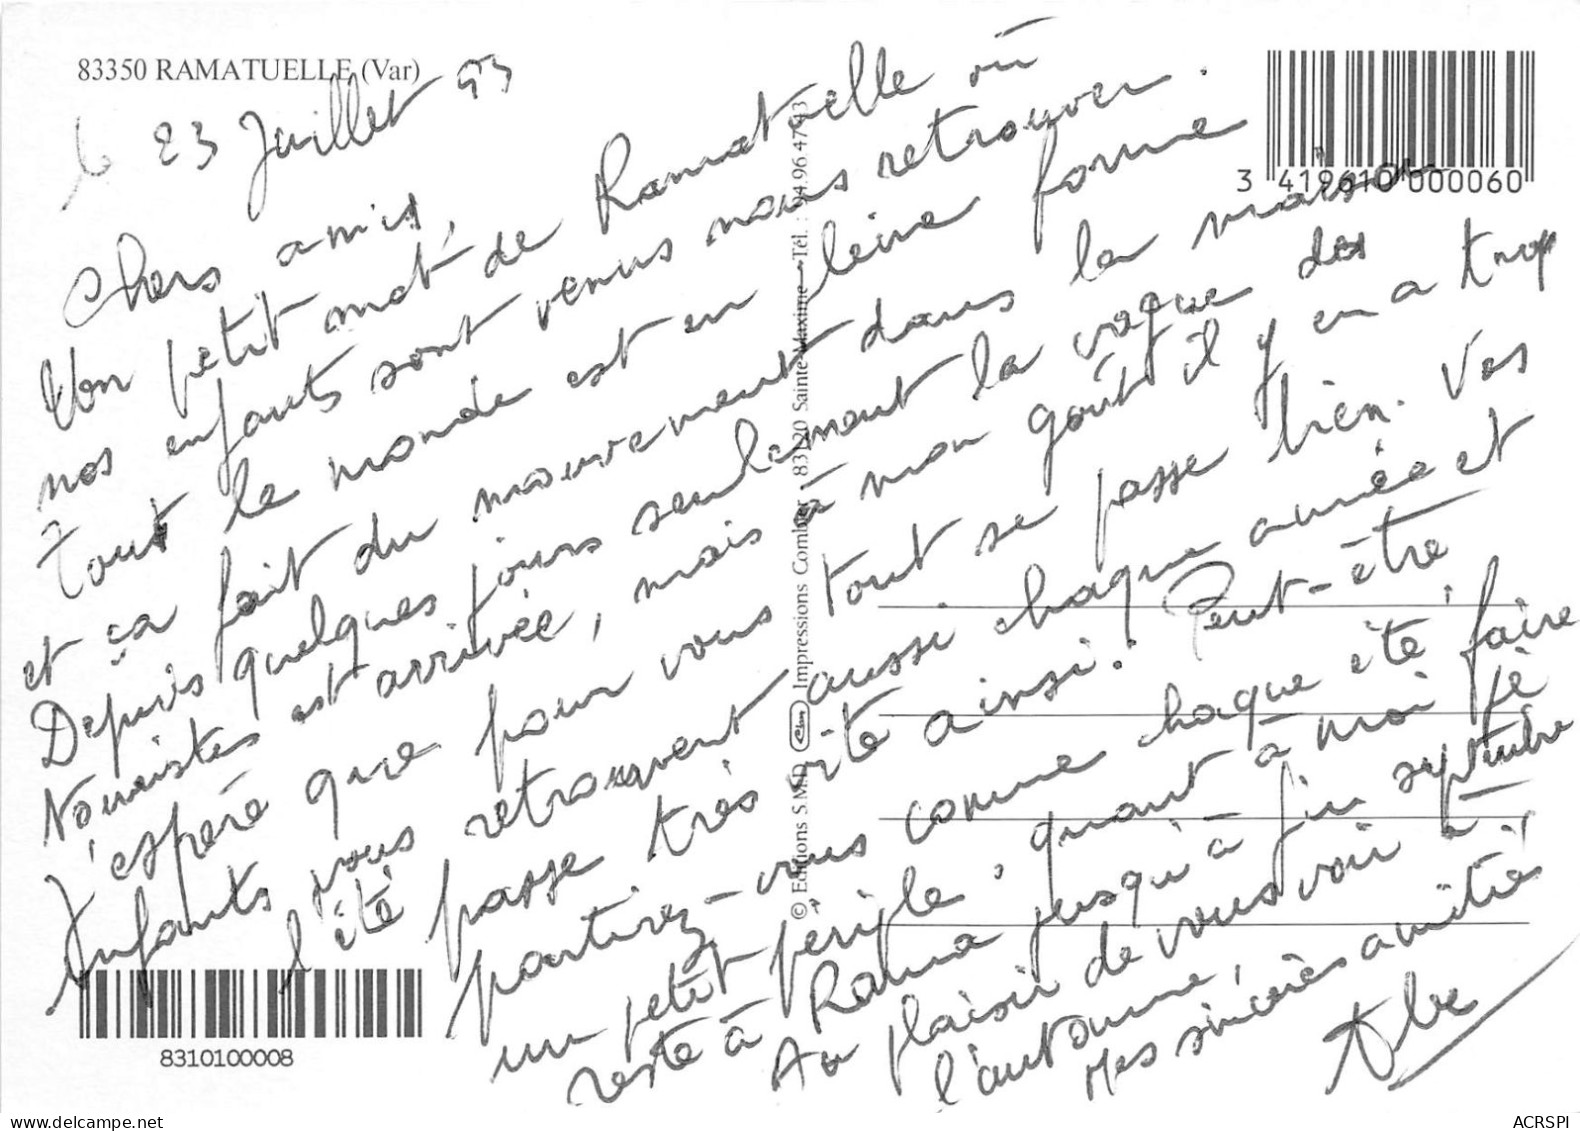 83350 RAMATUELLE (Var)
le 23 Juillet 93
Chers amis,
Un petit mot de Ramatuelle où
nos enfants sont venus nous retrouver.
Tout le monde est en pleine forme
et ça fait du mouvement dans la maison
Depuis quelques jours seulement la vague des
Nouristes est arrivée, mais à mon goût il y en a trop
J'espère que pour vous tout se passe bien. Vos
Enfants vous retrouvent aussi chaque année et
l'été passe très vite ainsi! Peut-être
partirez-vous comme chaque été, faire
un petit périple, quant à moi je
reste à Rama jusqu'à fin septembre
Au plaisir de vous voir à
l'automne,
Mes sincères amitiés
3 419610 000060
8310100008
© Editions S.M.D. Impressions Combier - 83120 Sainte-Maxime - Tél. : 94.96.47.93
ACRSPI
www.delcampe.net